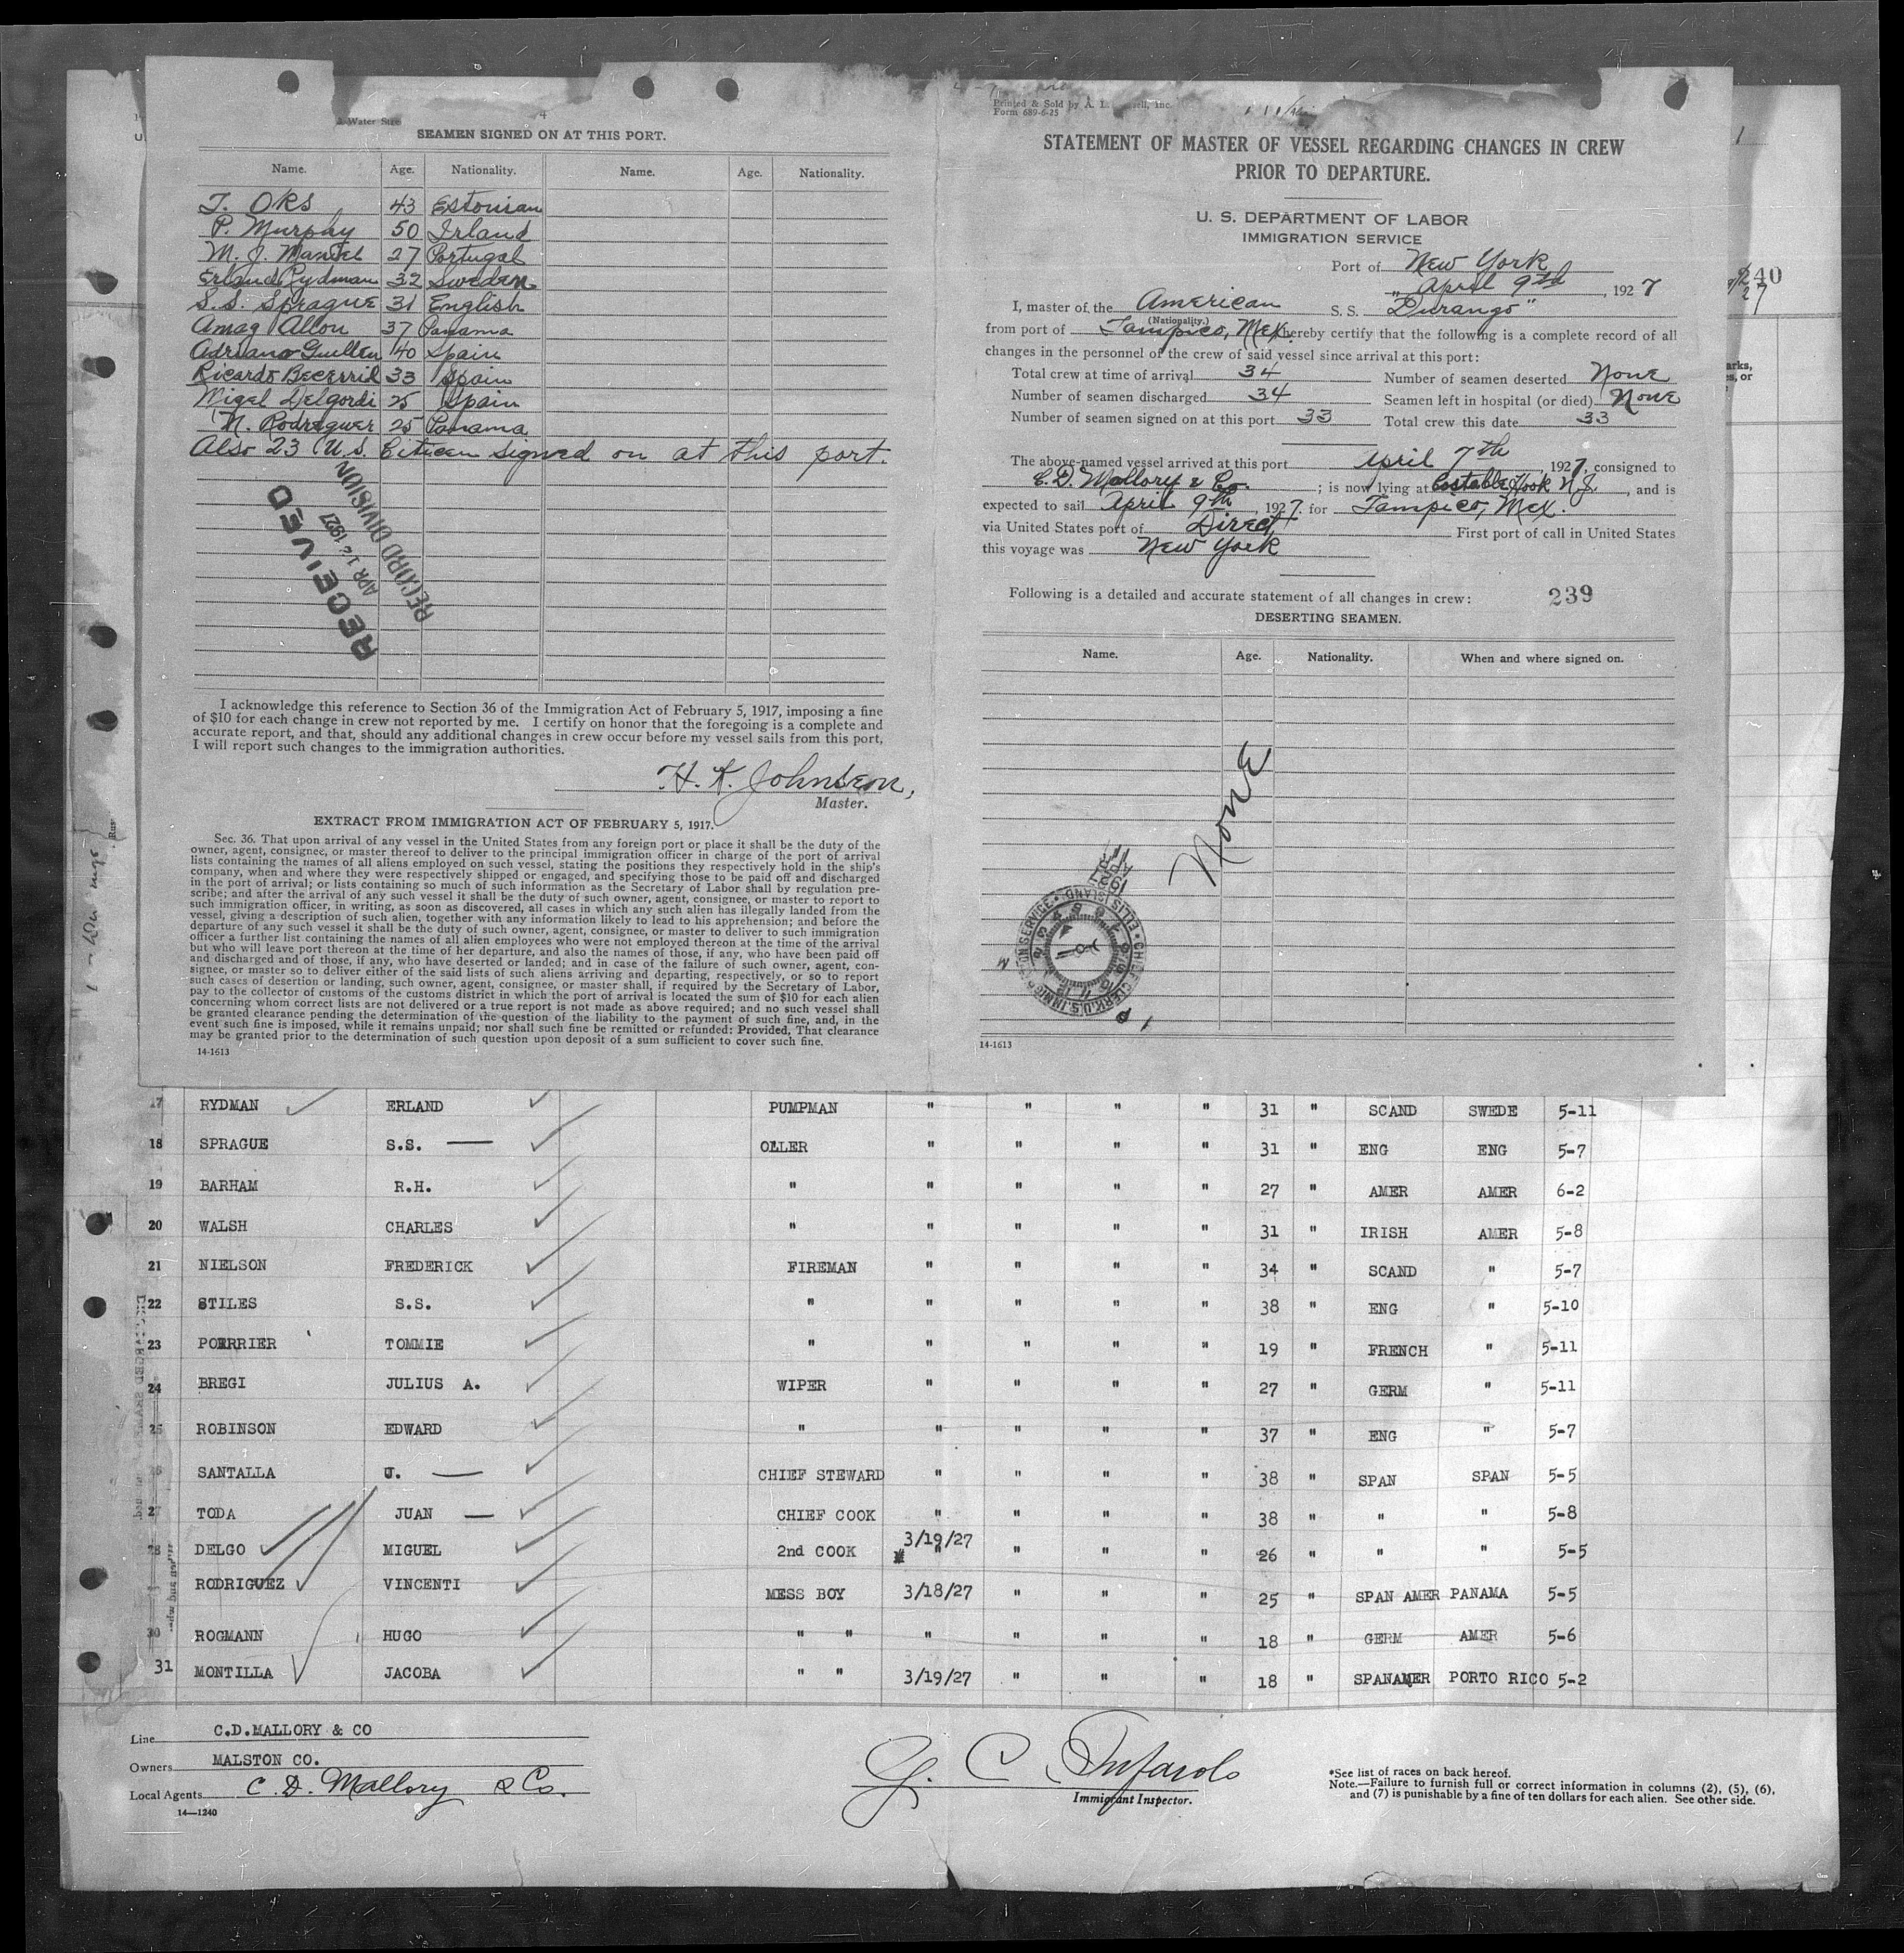 SEAMEN SIGNED ON AT THIS PORT.
Name. Age. Nationality. Name. Age. Nationality.
T. Oks 43 Estonian
P. Murphy 50 Irland
M. J. Mantel 27 Portugal
Erland Rydman 32 Sweden
S.S. Sprague 31 English
Amag Allon 37 Panama
Adriano Guillen 40 Spain
Ricardo Becerril 33 Spain
Migel Delgordi 25 Spain
N. Rodreguer 25 Panama
Also 23 U.S. Citicen signed on at this port.
RECEIVED
APR 12 1927
RECORD DIVISION
I acknowledge this reference to Section 36 of the Immigration Act of February 5, 1917, imposing a fine
of $10 for each change in crew not reported by me. I certify on honor that the foregoing is a complete and
accurate report, and that, should any additional changes in crew occur before my vessel sails from this port,
I will report such changes to the immigration authorities.
H. K. Johnson,
Master.
EXTRACT FROM IMMIGRATION ACT OF FEBRUARY 5, 1917.
Sec. 36. That upon arrival of any vessel in the United States from any foreign port or place it shall be the duty of the
owner, agent, consignee, or master thereof to deliver to the principal immigration officer in charge of the port of arrival
lists containing the names of all aliens employed on such vessel, stating the positions they respectively hold in the ship's
company, when and where they were respectively shipped or engaged, and specifying those to be paid off and discharged
in the port of arrival; or lists containing so much of such information as the Secretary of Labor shall by regulation pre-
scribe; and after the arrival of any such vessel it shall be the duty of such owner, agent, consignee, or master to report to
such immigration officer, in writing, as soon as discovered, all cases in which any such alien has illegally landed from the
vessel, giving a description of such alien, together with any information likely to lead to his apprehension; and before the
departure of any such vessel it shall be the duty of such owner, agent, consignee, or master to deliver to such immigration
officer a further list containing the names of all alien employees who were not employed thereon at the time of the arrival
but who will leave port thereon at the time of her departure, and also the names of those, if any, who have been paid off
and discharged and of those, if any, who have deserted or landed; and in case of the failure of such owner, agent, con-
signee, or master so to deliver either of the said lists of such aliens arriving and departing, respectively, or so to report
such cases of desertion or landing, such owner, agent, consignee, or master shall, if required by the Secretary of Labor,
pay to the collector of customs of the customs district in which the port of arrival is located the sum of $10 for each alien
concerning whom correct lists are not delivered or a true report is not made as above required; and no such vessel shall
be granted clearance pending the determination of the question of the liability to the payment of such fine, and, in the
event such fine is imposed, while it remains unpaid; nor shall such fine be remitted or refunded: Provided, That clearance
may be granted prior to the determination of such question upon deposit of a sum sufficient to cover such fine.
14-1613
Printed & Sold by A. L. Inc.
Form 689-6-25
STATEMENT OF MASTER OF VESSEL REGARDING CHANGES IN CREW
PRIOR TO DEPARTURE.
U. S. DEPARTMENT OF LABOR
IMMIGRATION SERVICE
Port of New York
April 9th, 1927
I, master of the American S. S. "Durango"
(Nationality.)
from port of Tampico, Mex. hereby certify that the following is a complete record of all
changes in the personnel of the crew of said vessel since arrival at this port:
Total crew at time of arrival 34 Number of seamen deserted None
Number of seamen discharged 34 Seamen left in hospital (or died) None
Number of seamen signed on at this port 33 Total crew this date 33
The above-named vessel arrived at this port April 7th, 1927, consigned to
C.D. Mallory & Co. ; is now lying at Constable Hook N.J., and is
expected to sail April 9th, 1927. for Tampico, Mex.
via United States port of Direct First port of call in United States
this voyage was New York
Following is a detailed and accurate statement of all changes in crew: 239
DESERTING SEAMEN.
Name. Age. Nationality. When and where signed on.
None
CHIEF CLERK, U.S. IMMIGRATION SERVICE • ELLIS ISLAND
14-1613
240
17 RYDMAN ERLAND PUMPMAN " " " " 31 " SCAND SWEDE 5-11
18 SPRAGUE S.S. OLLER " " " " 31 " ENG ENG 5-7
19 BARHAM R.H. " " " " " 27 " AMER AMER 6-2
20 WALSH CHARLES " " " " " 31 " IRISH AMER 5-8
21 NIELSON FREDERICK FIREMAN " " " " 34 " SCAND " 5-7
22 STILES S.S. " " " " " 38 " ENG " 5-10
23 POERRIER TOMMIE " " " " " 19 " FRENCH " 5-11
24 BREGI JULIUS A. WIPER " " " " 27 " GERM " 5-11
25 ROBINSON EDWARD " " " " " 37 " ENG " 5-7
26 SANTALLA J. CHIEF STEWARD " " " " 38 " SPAN SPAN 5-5
27 TODA JUAN CHIEF COOK " " " " 38 " " " 5-8
28 DELGO MIGUEL 2nd COOK 3/19/27 " " " " 26 " " " 5-5
RODRIGUEZ VINCENTI MESS BOY 3/18/27 " " " 25 " SPAN AMER PANAMA 5-5
30 ROGMANN HUGO " " " " " " 18 " GERM AMER 5-6
31 MONTILLA JACOBA " " 3/19/27 " " " 18 " SPANAMER PORTO RICO 5-2
Line C.D.MALLORY & CO
Owners MALSTON CO.
Local Agents C. D. Mallory & Co.
14—1240
Immigrant Inspector.
*See list of races on back hereof.
Note.—Failure to furnish full or correct information in columns (2), (5), (6),
and (7) is punishable by a fine of ten dollars for each alien. See other side.